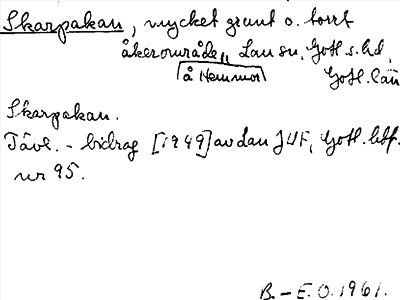 Skarpakan, mycket grunt o. torrt
åkerområde, Lau sn, Gotl. s. hd,
å Hemmor
Gotl. län
Skarpakan.
Tävl. - bidrag [1949] av Lau JUF, Gotl. bdf.
nr 95.
B. - E. O. 1961.